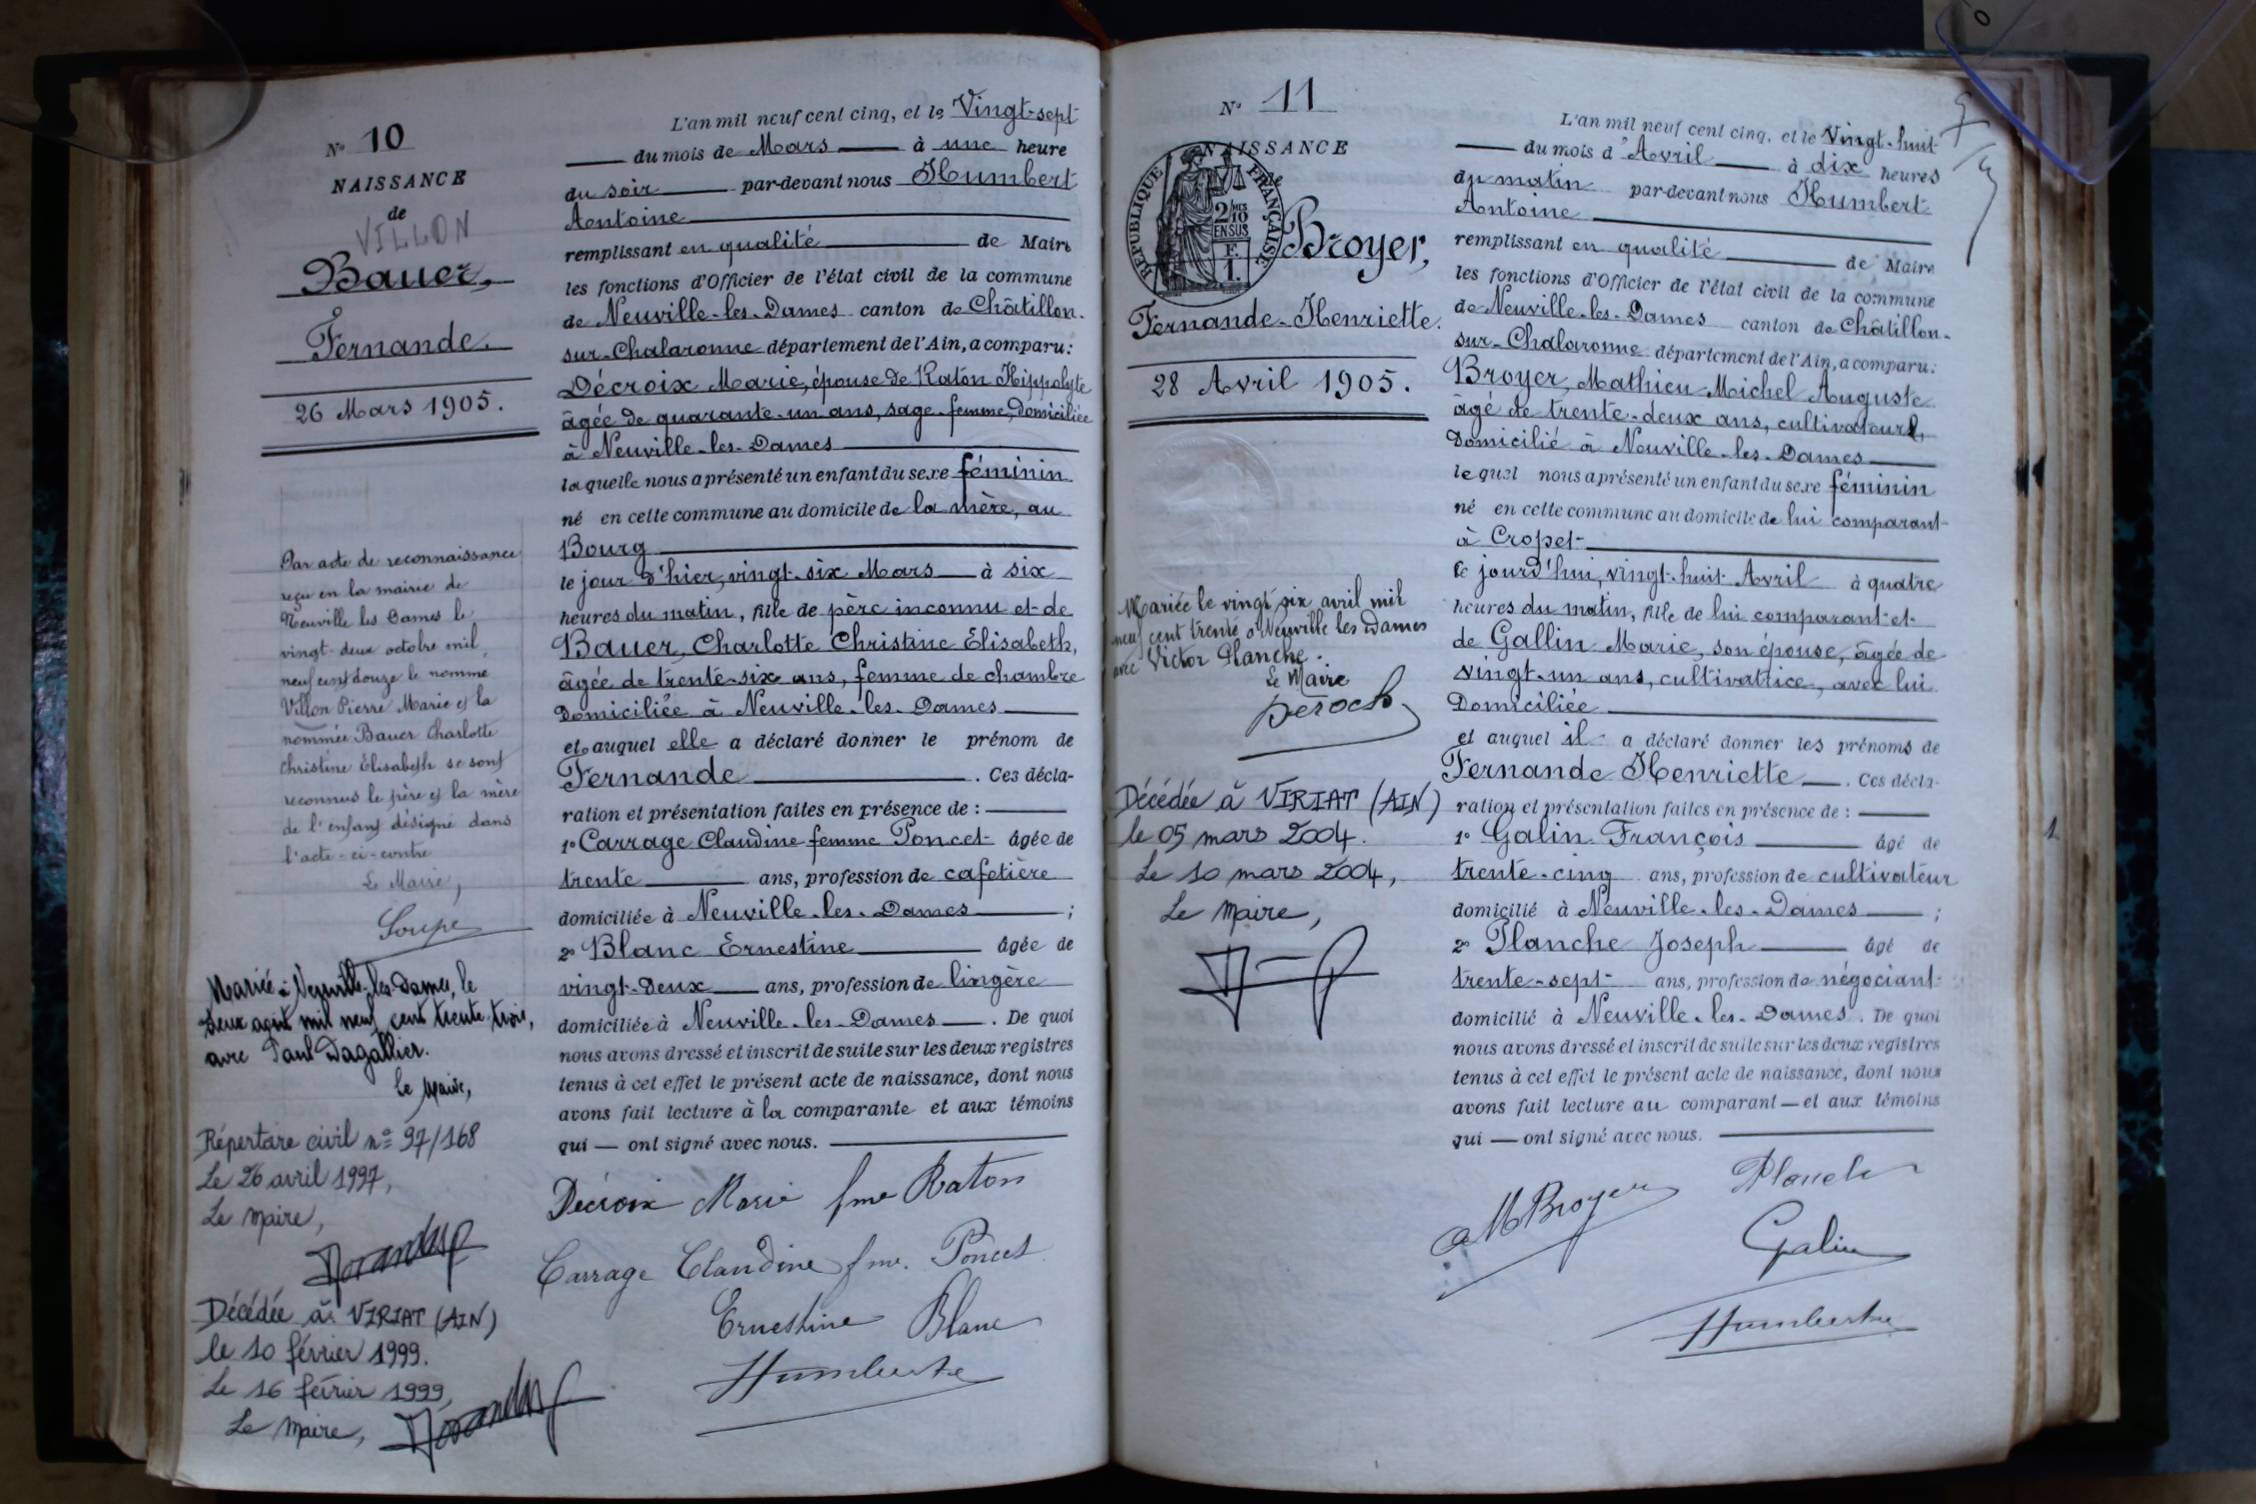 N° 10
NAISSANCE
de
VILLON
Bauer,
Fernande.
26 Mars 1905.
Par acte de reconnaissance
reçu en la mairie de
Neuville les Dames le
vingt-deux octobre mil
neuf cent douze le nommé
Villon Pierre Marie et la
nommée Bauer Charlotte
Christine Élisabeth se sont
reconnus le père et la mère
de l'enfant désigné dans
l'acte-ci-contre
Le Maire,
Soupe
Mariée à Neuville-les-Dames, le
deux août mil neuf cent trente trois,
avec Paul Dagallier.
le Maire,
Répertoire civil n° 97/168
Le 26 avril 1997,
Le Maire,
Décédée à VIRIAT (AIN)
le 10 février 1999.
Le 16 février 1999,
Le Maire,
L'an mil neuf cent cinq, et le Vingt-sept
du mois de Mars à une heure
du soir par-devant nous Humbert
Antoine
remplissant en qualité de Maire
les fonctions d'Officier de l'état civil de la commune
de Neuville-les-Dames canton de Châtillon-
sur-Chalaronne département de l'Ain, a comparu:
Décroix Marie, épouse de Raton Hippolyte
âgée de quarante-un ans, sage-femme, domiciliée
à Neuville-les-Dames
laquelle nous a présenté un enfant du sexe féminin
né en cette commune au domicile de la mère, au
Bourg
le jour d'hier, vingt-six Mars à six
heures du matin, fille de père inconnu et de
Bauer, Charlotte Christine Elisabeth,
âgée de trente-six ans, femme de chambre
domiciliée à Neuville-les-Dames
et auquel elle a déclaré donner le prénom de
Fernande. Ces décla-
ration et présentation faites en présence de :
1° Carrage Claudine femme Poncet âgée de
trente ans, profession de cafetière
domiciliée à Neuville-les-Dames ;
2° Blanc Ernestine âgée de
vingt-deux ans, profession de lingère
domiciliée à Neuville-les-Dames. De quoi
nous avons dressé et inscrit de suite sur les deux registres
tenus à cet effet le présent acte de naissance, dont nous
avons fait lecture à la comparante et aux témoins
qui — ont signé avec nous.
Décroix Marie fme Raton
Carrage Claudine fme. Poncet
Ernestine Blanc
Humbert
N° 11
NAISSANCE
de
REPUBLIQUE FRANÇAISE
2/10 MES
EN SUS
F.
1.
Broyer,
Fernande-Henriette.
28 Avril 1905.
Mariée le vingt six avril mil
neuf cent trente à Neuville les Dames
avec Victor Planche.
Le Maire
Décédée à VIRIAT (AIN)
le 05 mars 2004.
Le 10 mars 2004,
Le Maire,
L'an mil neuf cent cinq, et le Vingt-huit
du mois d'Avril à dix heures
du matin par-devant nous Humbert
Antoine
remplissant en qualité de Maire
les fonctions d'Officier de l'état civil de la commune
de Neuville-les-Dames canton de Châtillon-
sur-Chalaronne département de l'Ain, a comparu:
Broyer, Mathieu Michel Auguste
âgé de trente-deux ans, cultivateur,
domicilié à Neuville-les-Dames
lequel nous a présenté un enfant du sexe féminin
né en cette commune au domicile de lui comparant
à Cropet
le jourd'hui, vingt-huit Avril à quatre
heures du matin, fille de lui comparant et
de Gallin Marie, son épouse, âgée de
vingt-un ans, cultivatrice, avec lui
domiciliée
et auquel il a déclaré donner les prénoms de
Fernande Henriette. Ces décla-
ration et présentation faites en présence de :
1° Galin François âgé de
trente-cinq ans, profession de cultivateur
domicilié à Neuville-les-Dames ;
2° Planche Joseph âgé de
trente-sept ans, profession de négociant
domicilié à Neuville-les-Dames. De quoi
nous avons dressé et inscrit de suite sur les deux registres
tenus à cet effet le présent acte de naissance, dont nous
avons fait lecture au comparant — et aux témoins
qui — ont signé avec nous.
MBroyer Planche
Galin
Humbert
1